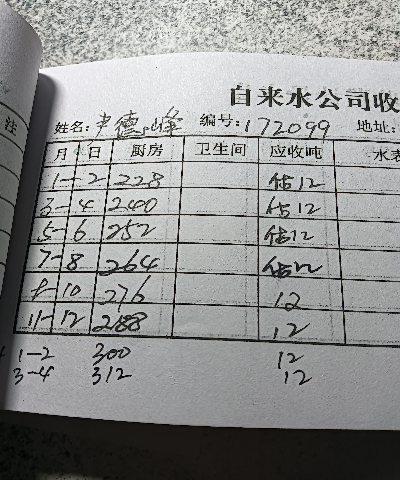 自来水公司收
注 姓名: 德峰 编号: 172099 地址:
月 日 厨房 卫生间 应收吨 水表
1-2 228 估12
3-4 240 估12
5-6 252 估12
7-8 264 估12
10 276 12
11-12 288 12
1-2 300 12
3-4 312 12